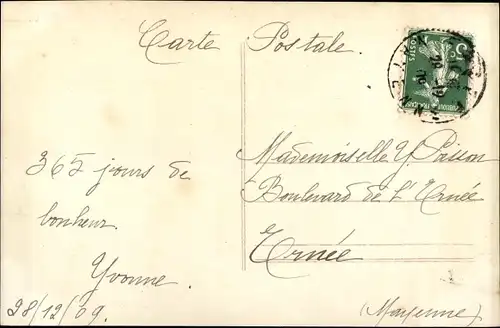 Carte Postale.
365 jours de
bonheur.
Yvonne.
28/12/09.
Mademoiselle Y. Poisson
Boulevard de L'Ernée
Ernée
(Mayenne)
5c
POSTES